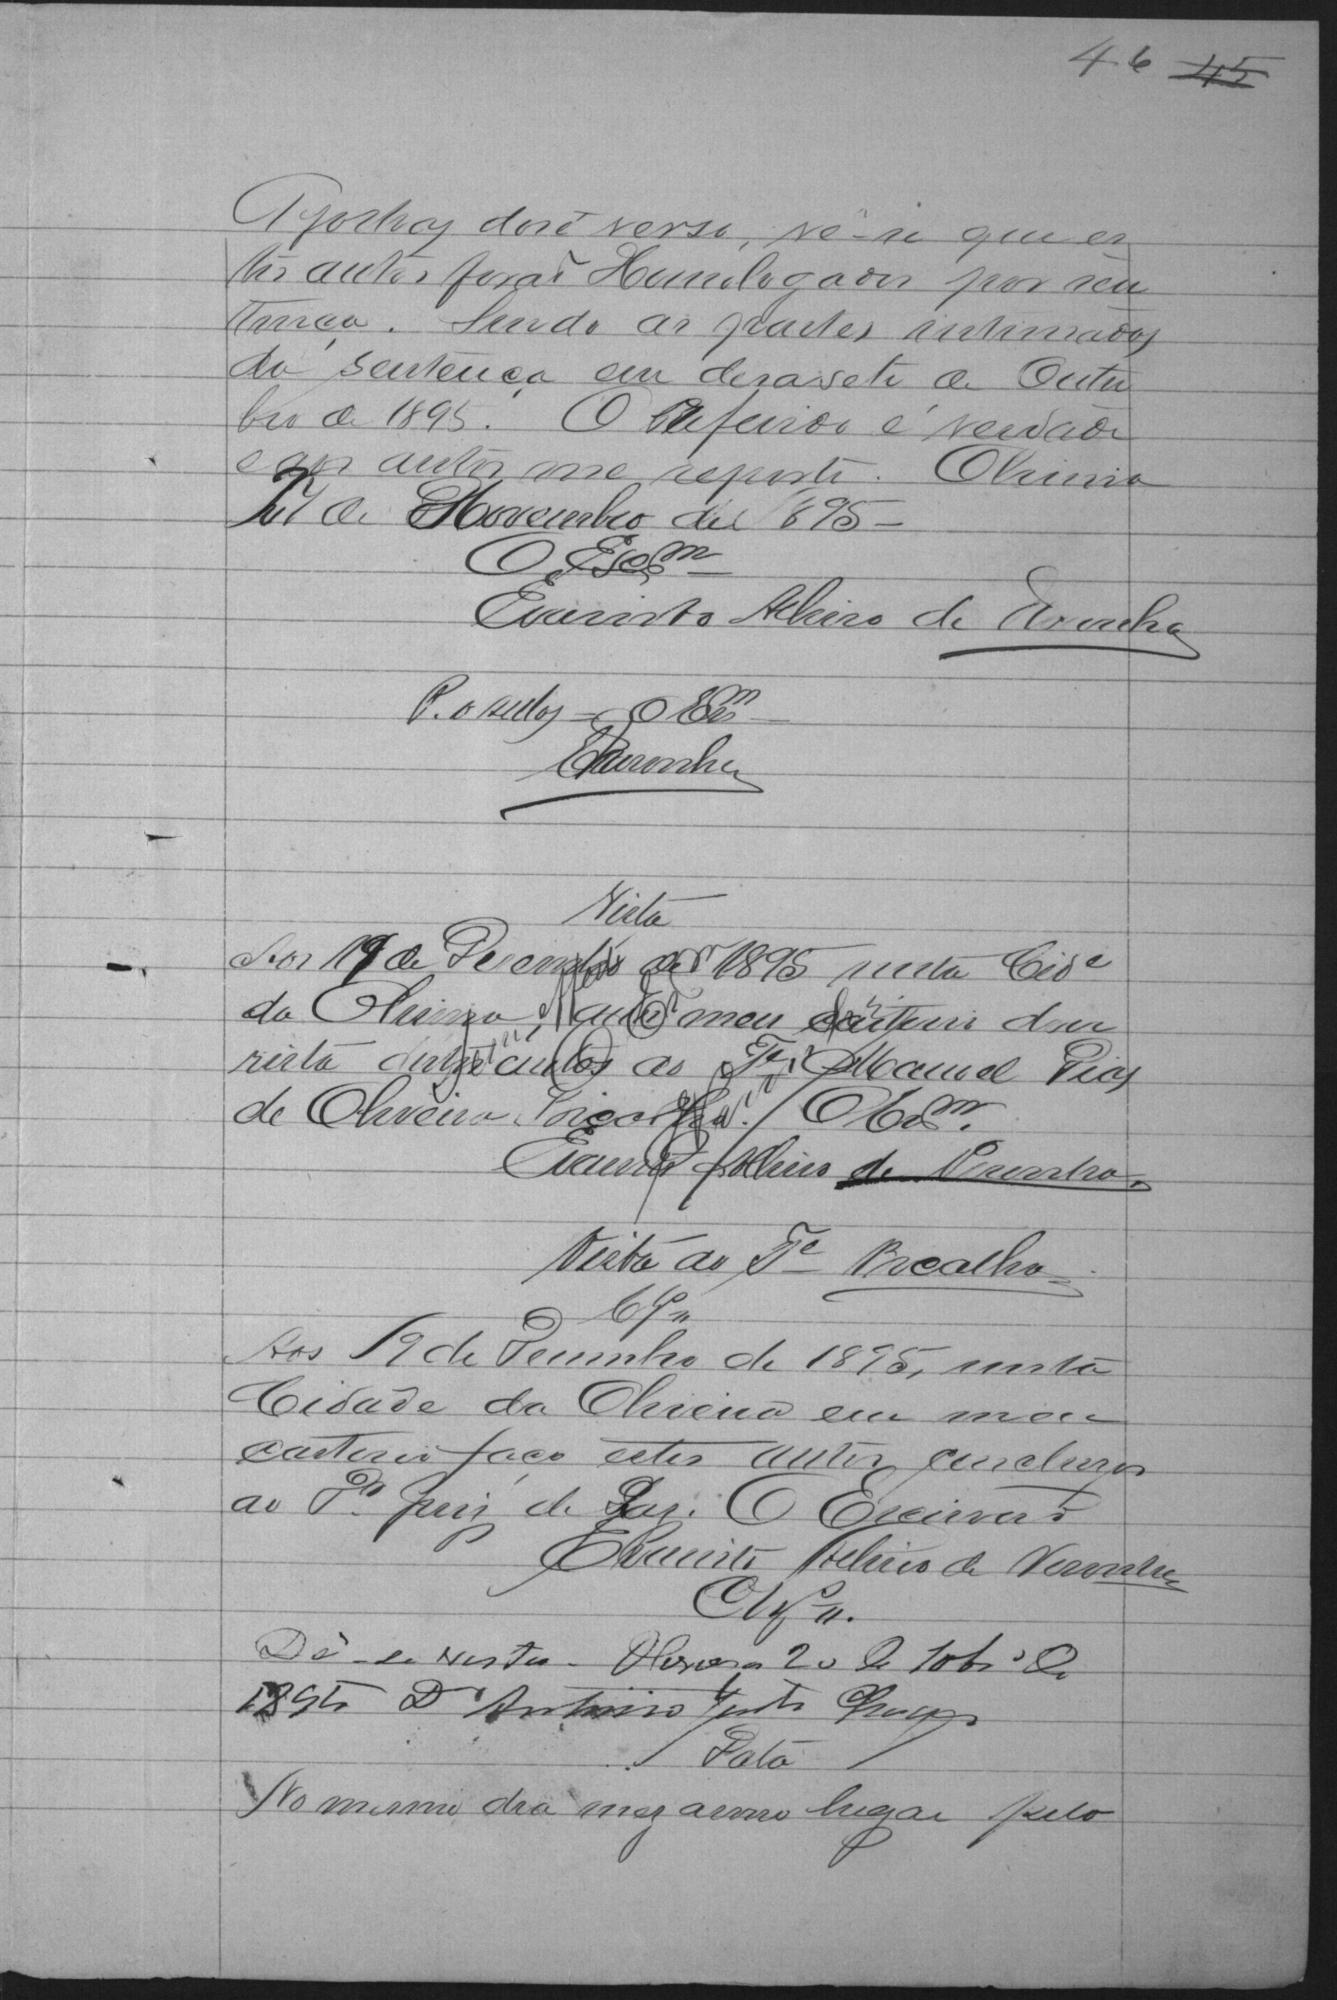 46 45
A folhas doze verso, vê-se que es
tes autos forão Homologados por sen
tença. Sendo as partes intimadas
da sentença em desassete de Outu
bro de 1895. O referido é verdade
e aos autos me reporto. Oliveira
de Novembro de 1895 –
O Escm
Evaristo Alvino de Noronha
P. os sellos – O Esm
Noronha
Vista
Aos 19 de Dezembro de 1895 nesta Cide
da Oliveira, em meu cartorio dou
vista destes autos ao Te Manoel Dias
de Oliveira Bicalho. O Esm.
Evaristo Alvino de Noronha.
Vista ao Te Bicalho
Clsm
Aos 19 de Dezembro de 1895, nesta
Cidade da Oliveira em meu
cartorio faço estes autos conclusos
ao 1º juis de Paz. O Escrivão
Evaristo Alvino de Noronha
Clsm.
Dê-se vista. Oliveira 20 de 10bro de
1895 Antonio Justo Chagas
Data
No mesmo dia mez anno lugar pelo